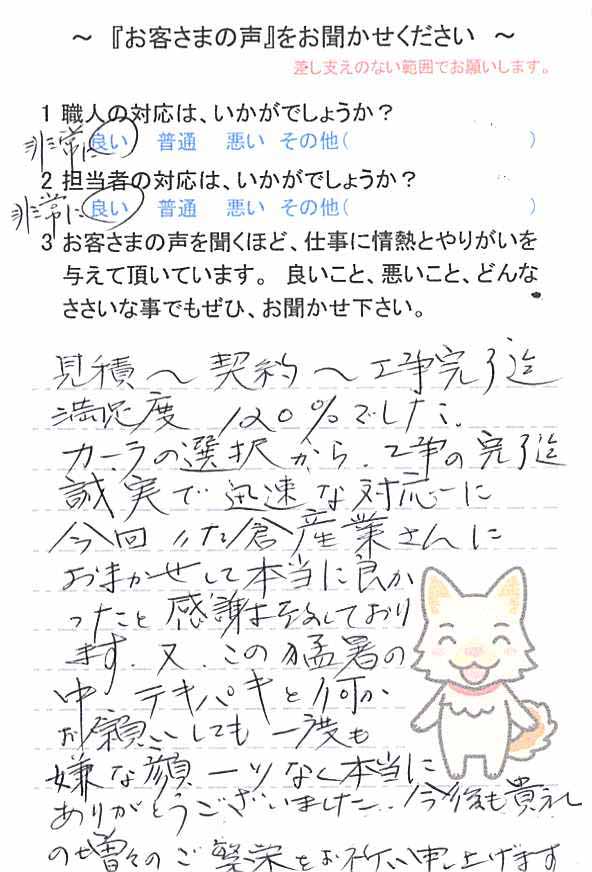 ～ 『お客さまの声』をお聞かせください ～
差し支えのない範囲でお願いします。
1 職人の対応は、いかがでしょうか？
非常に 良い 普通 悪い その他( )
2 担当者の対応は、いかがでしょうか？
非常に 良い 普通 悪い その他( )
3 お客さまの声を聞くほど、仕事に情熱とやりがいを
与えて頂いています。 良いこと、悪いこと、どんな
ささいな事でもぜひ、お聞かせ下さい。
見積～契約～工事完了迄
満足度 120%でした。
カラーの選択から、工事の完了迄
誠実で迅速な対応に
今回 倉産業さんに
おまかせして本当に良か
ったと感謝致しており
ます。又、この猛暑の
中、テキパキと何か
お願いしても一度も
嫌な顔一ツなく本当に
ありがとうございました。今後も貴社
の増々のご繁栄をお祈い申し上げます